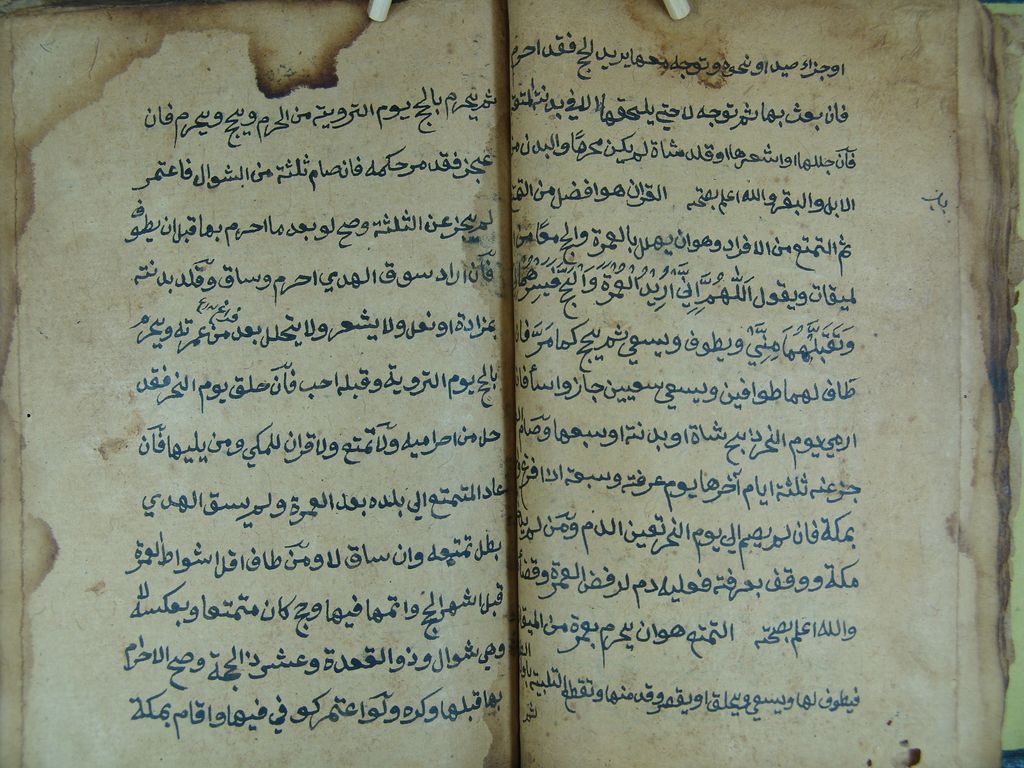 اوجزاء صيد او نحوه وتوجه معها يريد الحج فقد احرم
فان بعث بها ثم توجه لا حتى يلحقها الا في بدنة المتعة
فان جللها او اشعرها او قلد شاة لم يكن محرما والبدن من
الابل والبقر والله اعلم بصحته القران هو افضل من التمتع
ثم التمتع من الافراد وهو ان يهل بالعمرة والحج معا من
لميقات ويقول اَللّٰهُمَّ اِنِّي اُرِيْدُ الْعُمْرَةَ وَالْحَجَّ فَيَسِّرْهُمَا لِي
وَتَقَبَّلْهُمَا مِنِّيْ ويطوف ويسعي ثم يحج كما مَرَّ فان
طاف لهما طوافين ويسعي سعيين جاز واسأ فاذا
ارمي يوم النحر ذبح شاة او بدنة او سبعها وصام ال
جز عنه ثلثة ايام آخرها يوم عرفة وسبعة اذا افرغ و
بمكة فان لم يصم الي يوم النحر تعين الدم ومن لم يد
مكة ووقف بعرفة فعليه دم لرفض العمرة وقضا
والله اعلم بصحته التمتع هو ان يحرم بعمرة من الميقا
فيطوف لها ويسعي ويحلق او يقصر وقد منها وتقطع التلبية باول
ثم
باب
ثم يحرم بالحج يوم التروية من الحرم ويحج ويحرم فان
عجز فقد مر حكمه فان صام ثلثة من الشوال فاعتمر
لم يجز عن الثلثة وصح لو بعد ما احرم بها قبل ان يطوف
فآن اراد سوق الهدي احرم وساق وقلد بدنته
بمزادة او نعل ولا يشعر ولا يتحلل بعد من عمرته ويحرم
بالحج يوم التروية وقبله احب فآن حلق يوم النحر فقد
حل من احراميه ولا تمتع ولا قران للمكي ومن يليها فآن
عاد المتمتع الي بلده بعد العمرة ولم يسق الهدي
بطل تمتعه وان ساق لا ومن طاف اقل اشواط العمرة
قبل اشهر الحج واتمها فيها وحج كان متمتعا وبعكسه لا
وهي شوال وذو القعدة وعشر ذ الحجة وصح الاحرام
بها قبلها وكره ولو اعتمر كوفي فيها واقام بمكة